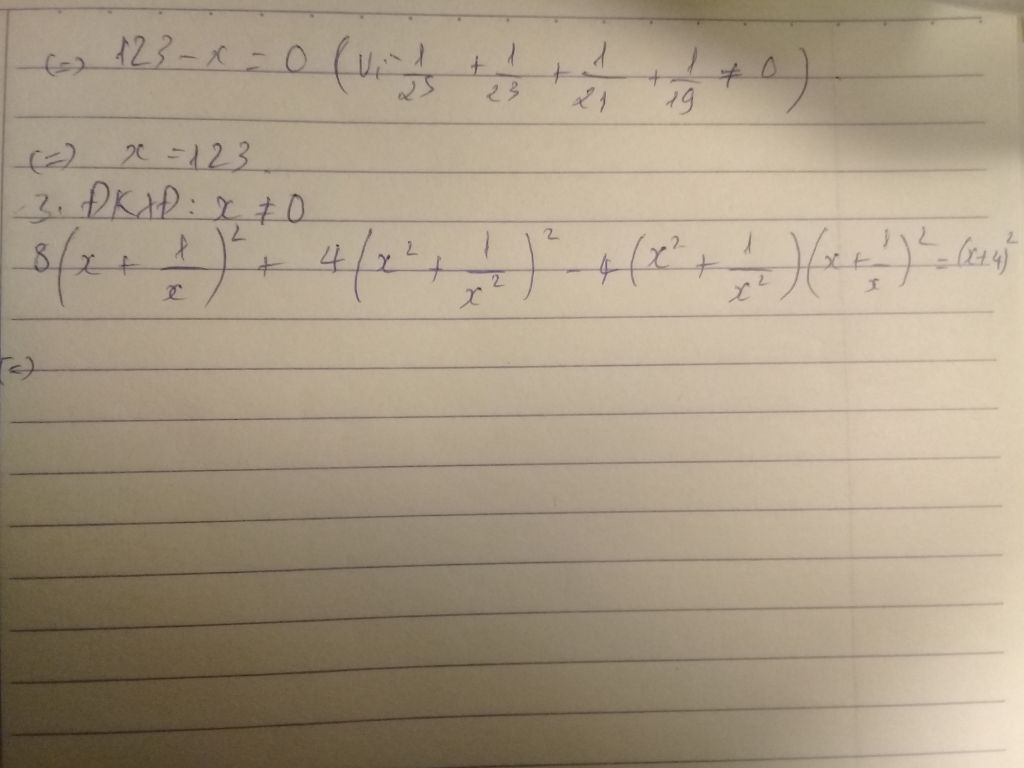 (=) 123 - x = 0 (Vì 1/25 + 1/23 + 1/21 + 1/19 ≠ 0)
(=) x = 123
3. ĐKXĐ: x ≠ 0
8(x + 1/x)² + 4(x² + 1/x²)² - 4(x² + 1/x²)(x + 1/x)² = (x+4)²
(=)